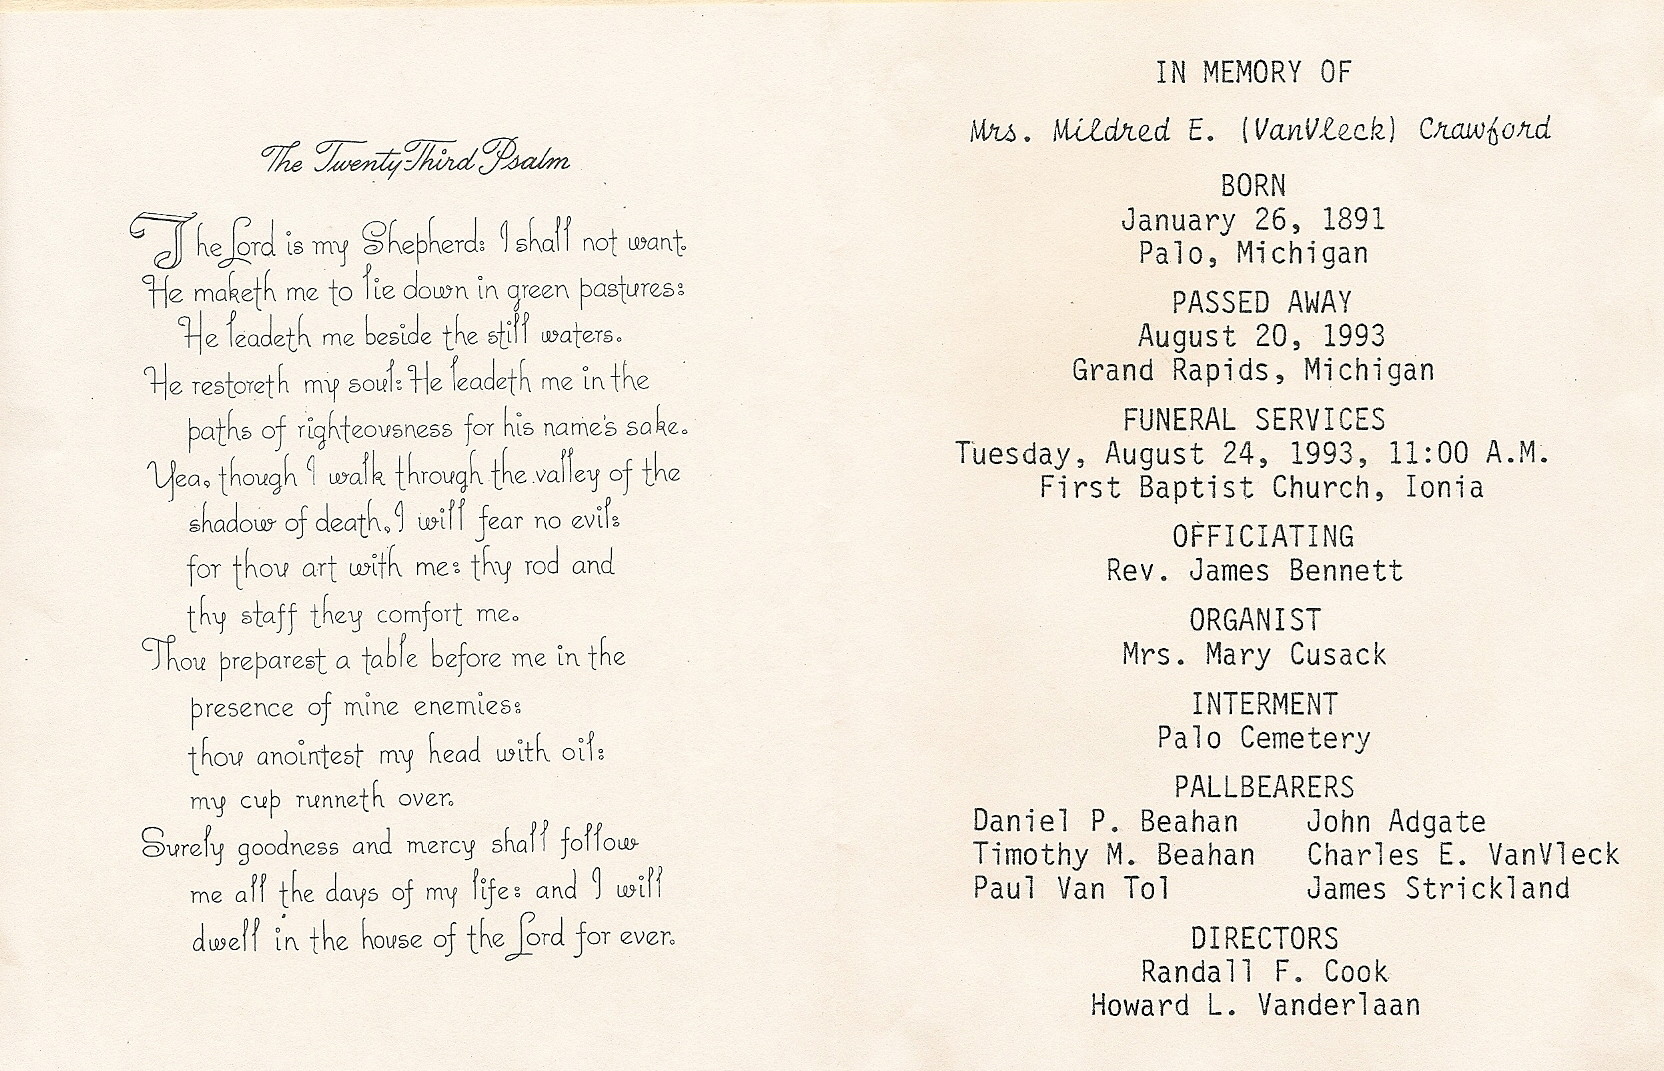 The Twenty-Third Psalm
The Lord is my Shepherd: I shall not want.
He maketh me to lie down in green pastures:
He leadeth me beside the still waters.
He restoreth my soul: He leadeth me in the
paths of righteousness for his name's sake.
Yea, though I walk through the valley of the
shadow of death, I will fear no evil:
for thou art with me: thy rod and
thy staff they comfort me.
Thou preparest a table before me in the
presence of mine enemies:
thou anointest my head with oil:
my cup runneth over.
Surely goodness and mercy shall follow
me all the days of my life: and I will
dwell in the house of the Lord for ever.
IN MEMORY OF
Mrs. Mildred E. (VanVleck) Crawford
BORN
January 26, 1891
Palo, Michigan
PASSED AWAY
August 20, 1993
Grand Rapids, Michigan
FUNERAL SERVICES
Tuesday, August 24, 1993, 11:00 A.M.
First Baptist Church, Ionia
OFFICIATING
Rev. James Bennett
ORGANIST
Mrs. Mary Cusack
INTERMENT
Palo Cemetery
PALLBEARERS
Daniel P. Beahan John Adgate
Timothy M. Beahan Charles E. VanVleck
Paul Van Tol James Strickland
DIRECTORS
Randall F. Cook
Howard L. Vanderlaan